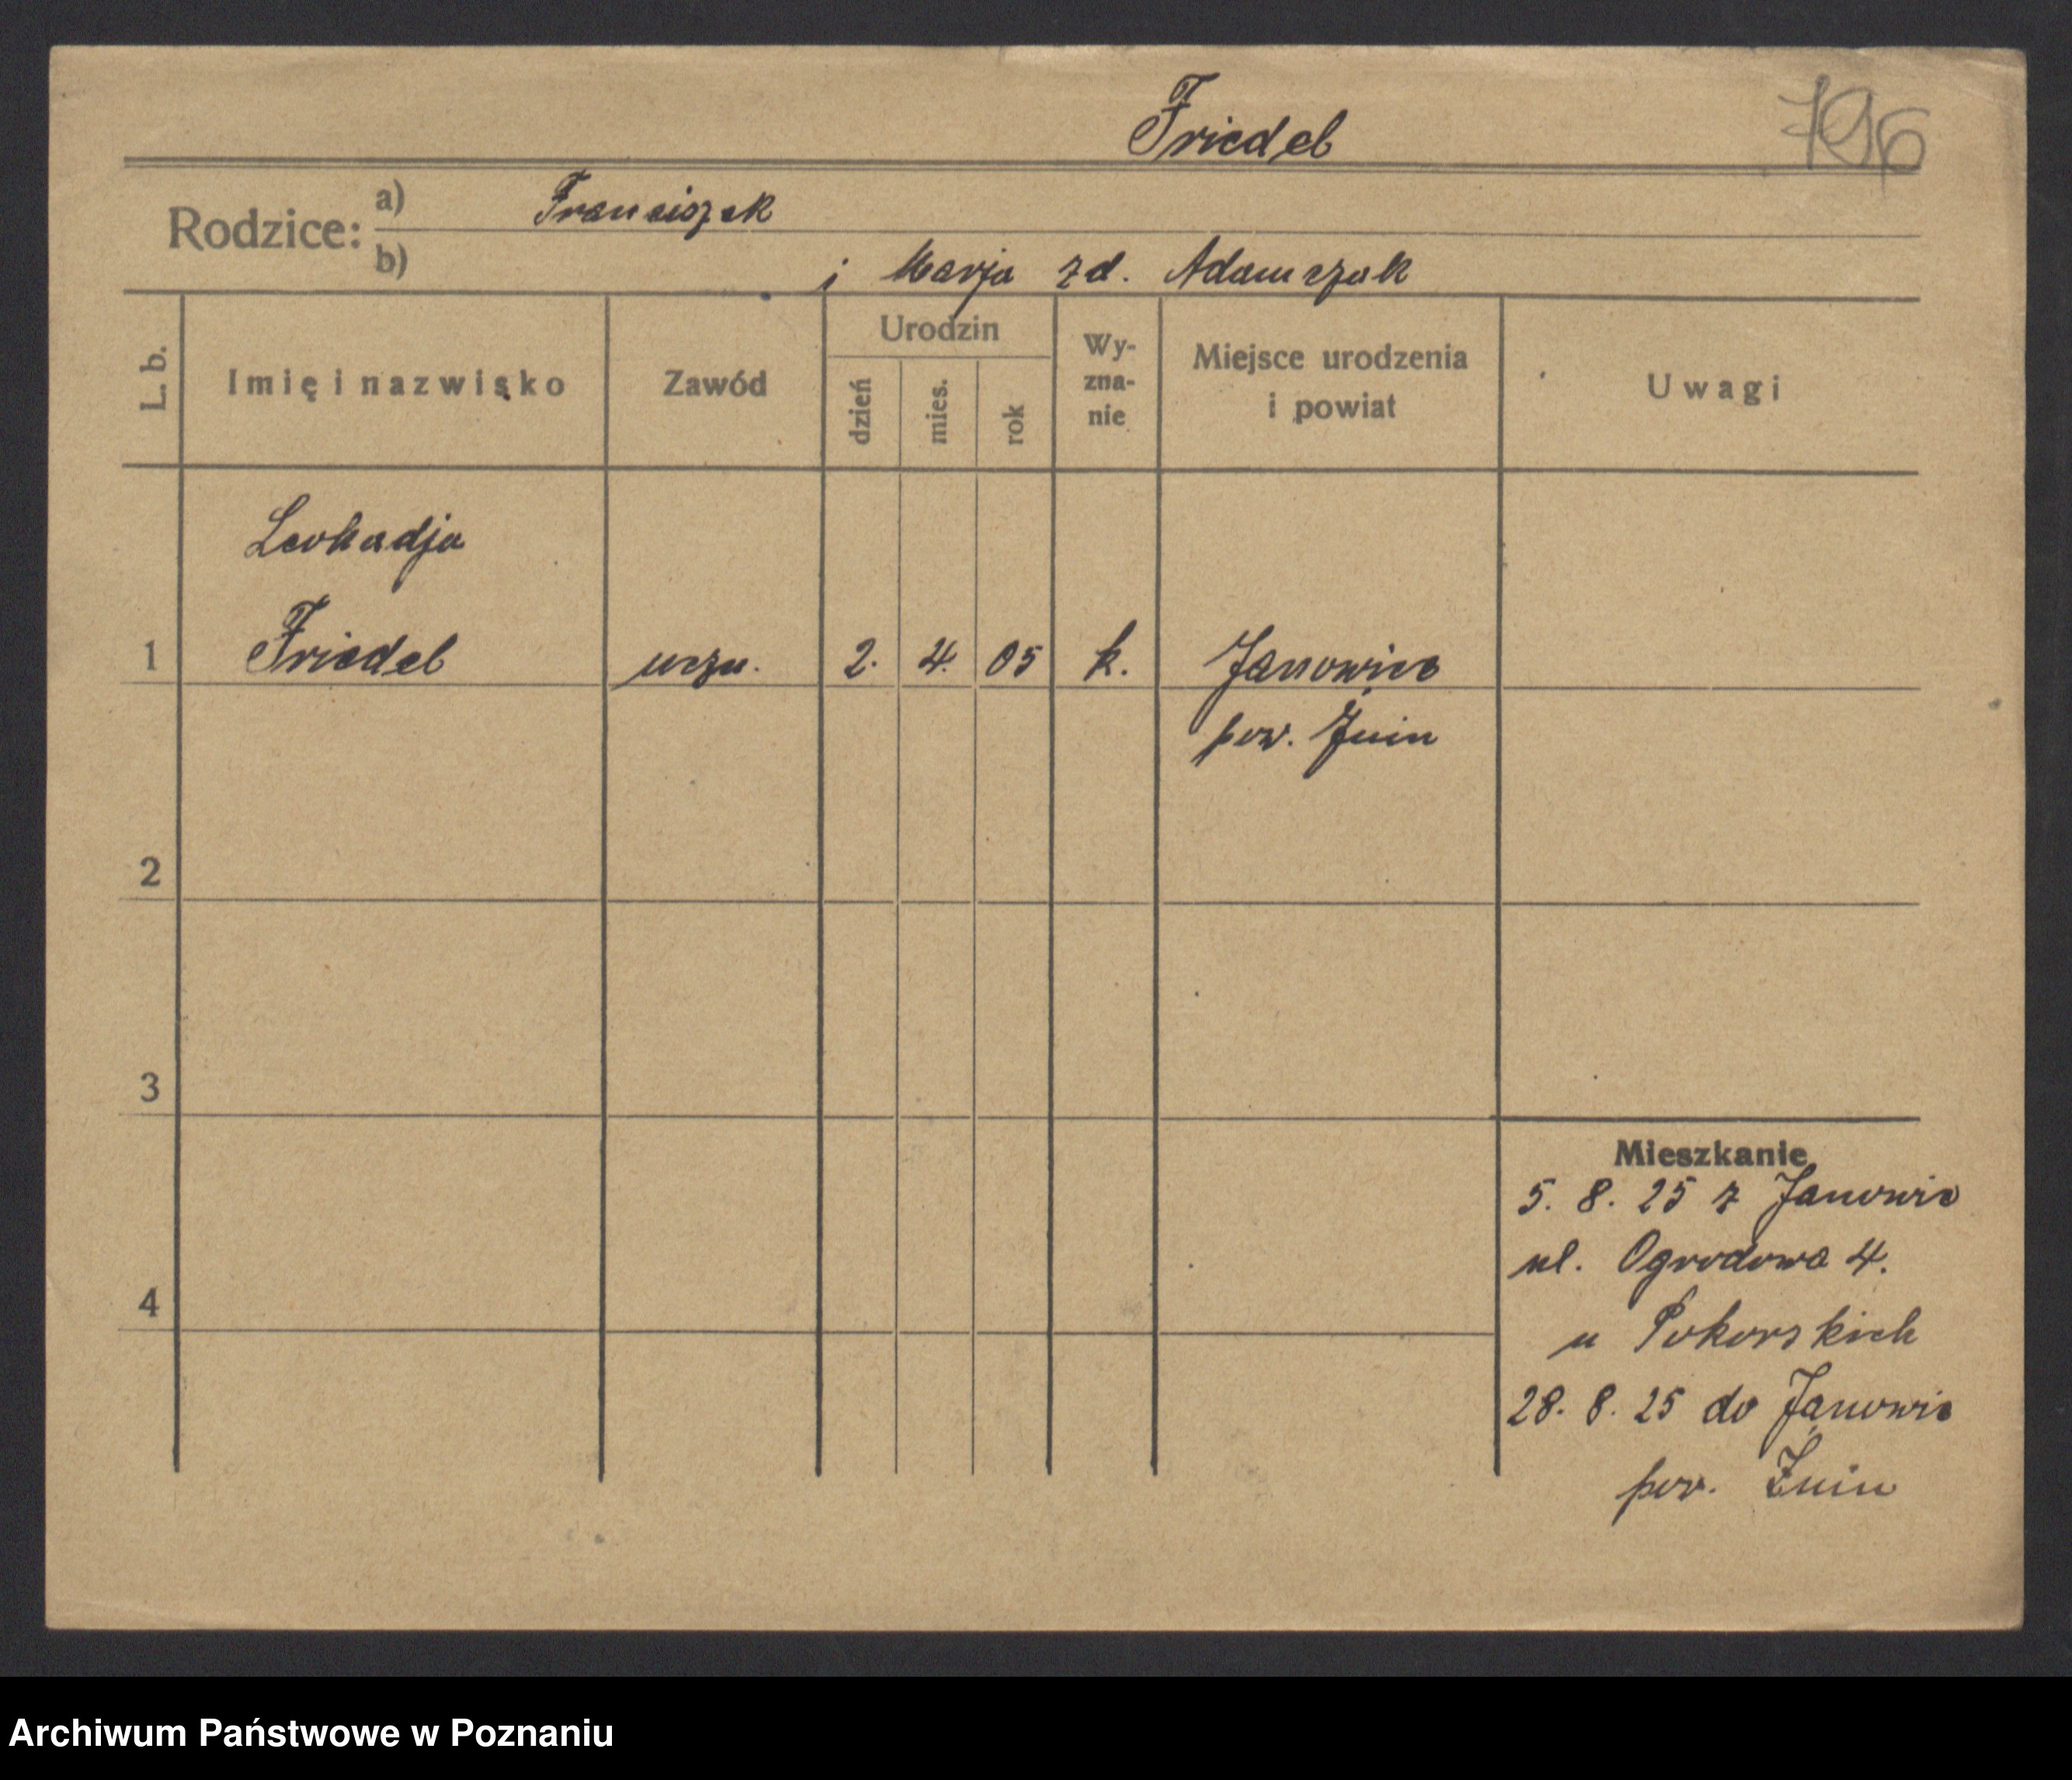 Friedel
796
Rodzice:
a) Franciszek
b) i Marja zd. Adamczak
L. b.
Imię i nazwisko
Zawód
Urodzin
dzień
mies.
rok
Wy-
zna-
nie
Miejsce urodzenia
i powiat
Uwagi
Leokadja
1 Friedel uczn. 2. 4. 05 k. Janowiec
pow. Żnin
2
3
4
Mieszkanie
5. 8. 25 z Janowic
ul. Ogrodowa 4.
u Pokorskich
28. 8. 25 do Janowic
pow. Żnin
Archiwum Państwowe w Poznaniu